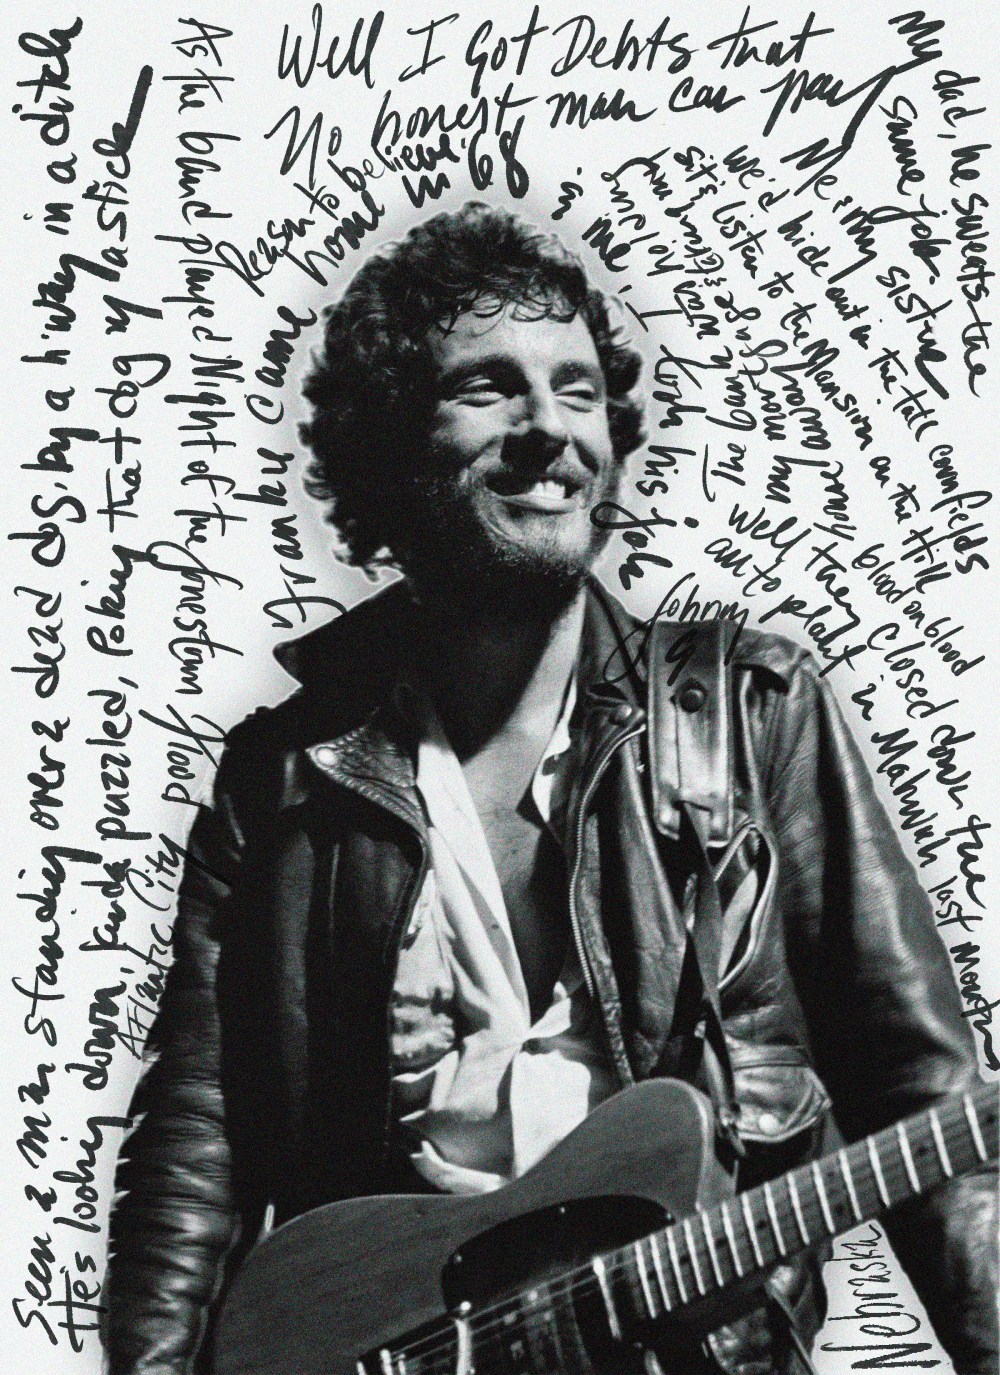 Well I Got Debts that
No honest man can pay
Reason to believe
Frankie came home in '68
in me, I
took his job
Johnny 99
Seen a man standing over a dead dog, by a hiway in a ditch
He's looking down, kinda puzzled, Poking that dog w/ a stick
As the band played Night of the Jonestown Flood
Atlantic City
My dad, he sweats the
same job
Me & my sister
we'd hide out in the tall cornfields
sit & listen to the Mansion on the Hill
blood on blood
Well they closed down the
auto plant in Mahwah last month
Nebraska